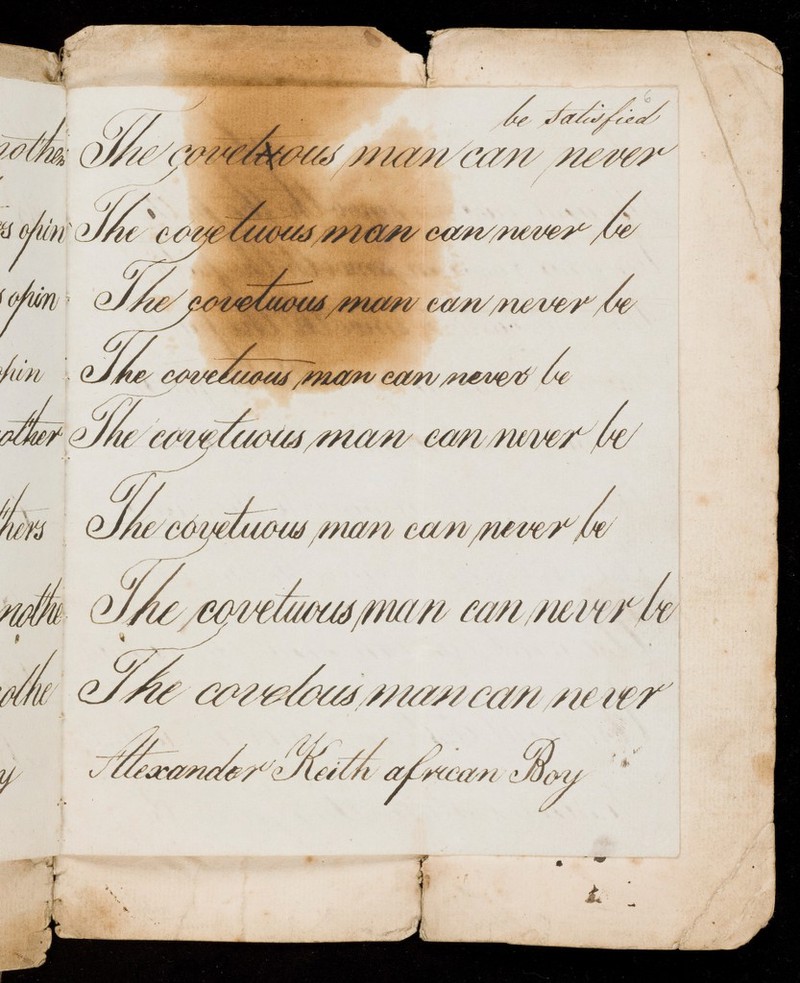 be satisfied
nother The covetuous man can never
rs opin The covetuous man can never be
s opin The covetuous man can never be
pin The covetuous man can never be
other The covetuous man can never be
thers The covetuous man can never be
nothe The covetuous man can never be
othe The covetous man can never
y Alexander Keith african Boy